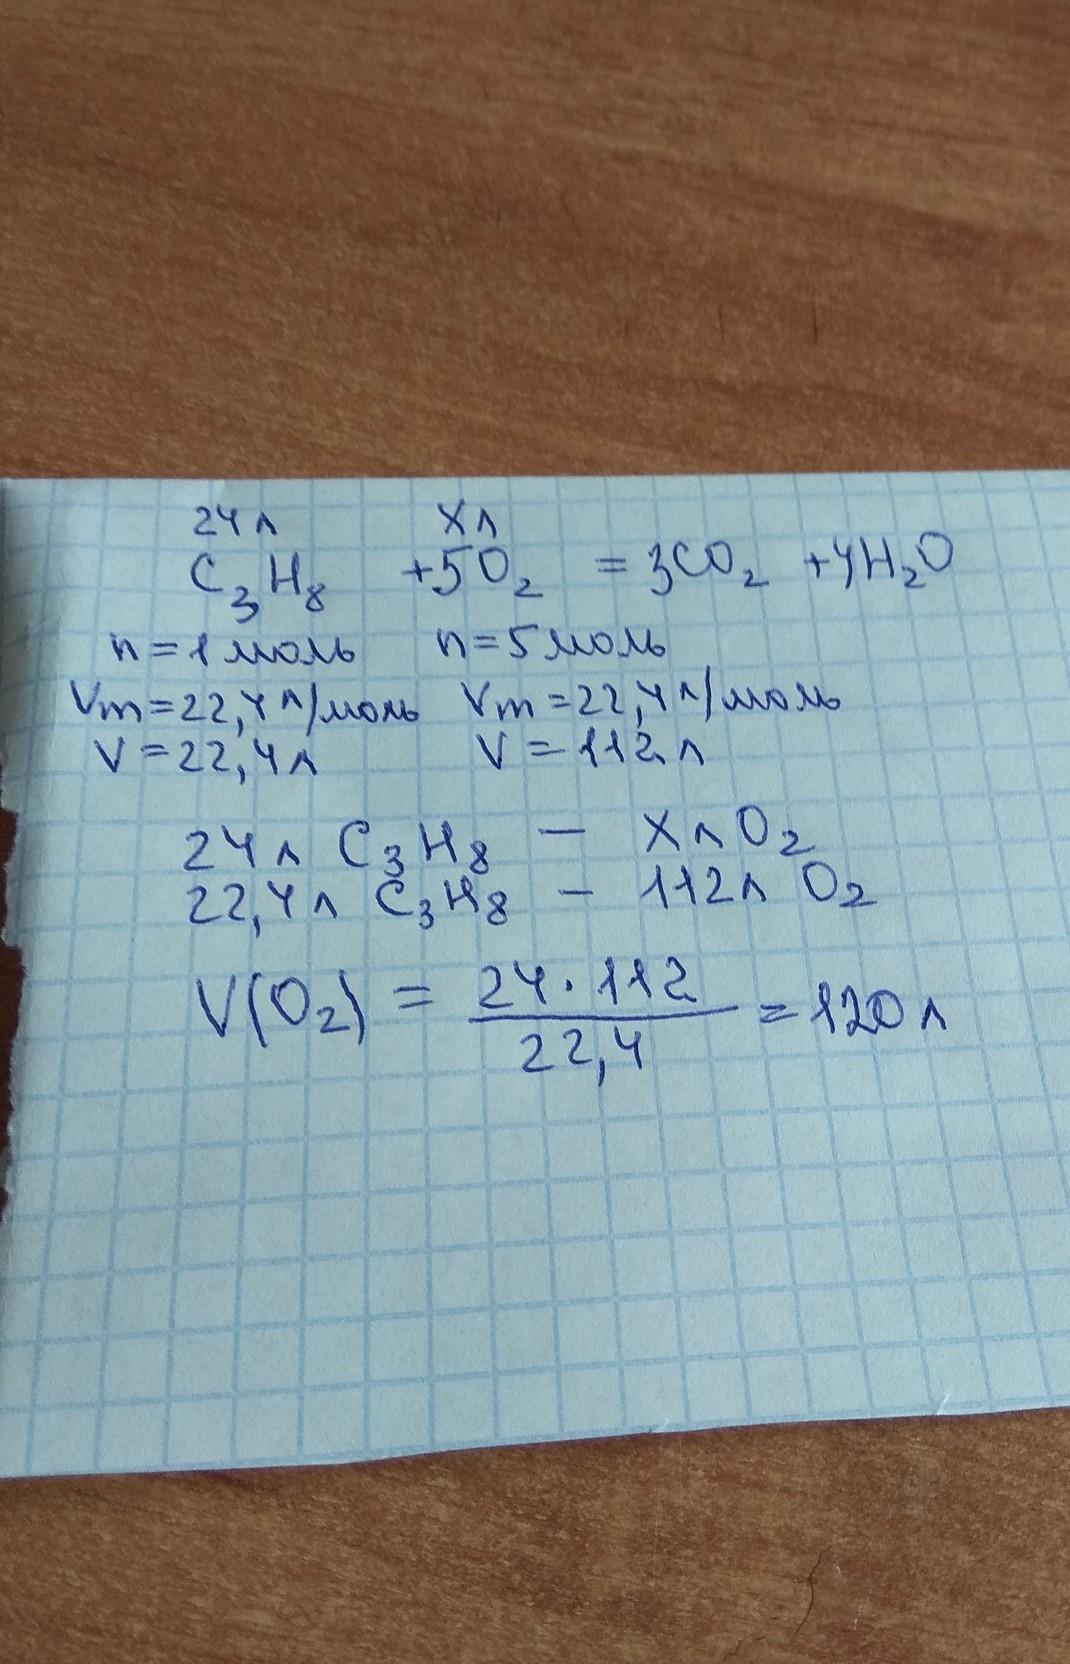 24л Xл
C₃H₈ +5O₂ = 3CO₂ +4H₂O
n=1моль n=5моль
Vm=22,4л/моль Vm=22,4л/моль
V=22,4л V=112л
24л C₃H₈ – XлO₂
22,4л C₃H₈ – 112л O₂
V(O₂) = 24·112/22,4 =120л